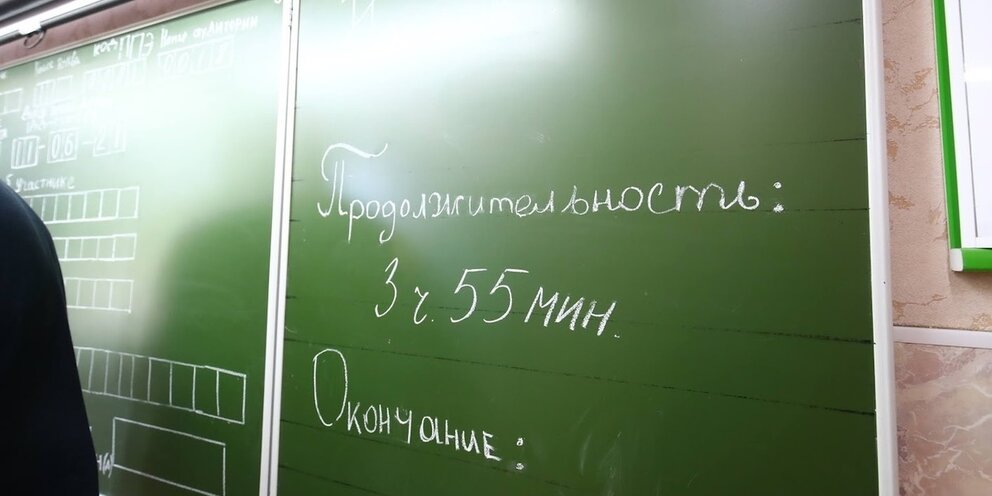 код ППЭ Номер аудитории
11-06-21
участнике
Продолжительность:
3 ч. 55 мин.
Окончание: